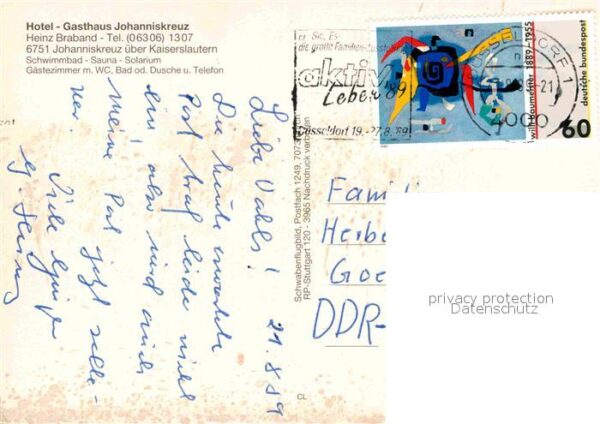 Hotel - Gasthaus Johanniskreuz
Heinz Braband - Tel. (06306) 1307
6751 Johanniskreuz über Kaiserslautern
Schwimmbad - Sauna - Solarium
Gästezimmer m. WC, Bad od. Dusche u. Telefon
21.8.89
Liebe Vahls!
Die heute erwartete
Post traf leider nicht
ein, also wird auch
meine Post jetzt selte-
ner.
Viele Grüße
Schwabenflugbild, Postfach 1249, 707
RP-Stuttgart 120 - 3965 Nachdruck verboten
CL
die große Familien-Ausstellung
aktiv
Leben 89
Düsseldorf 19.-27.8.89
DÜSSELDORF 1
4000
willi baumeister 1889-1955
deutsche bundespost
60
Famili
Herbe
Goe
DDR-
privacy protection
Datenschutz